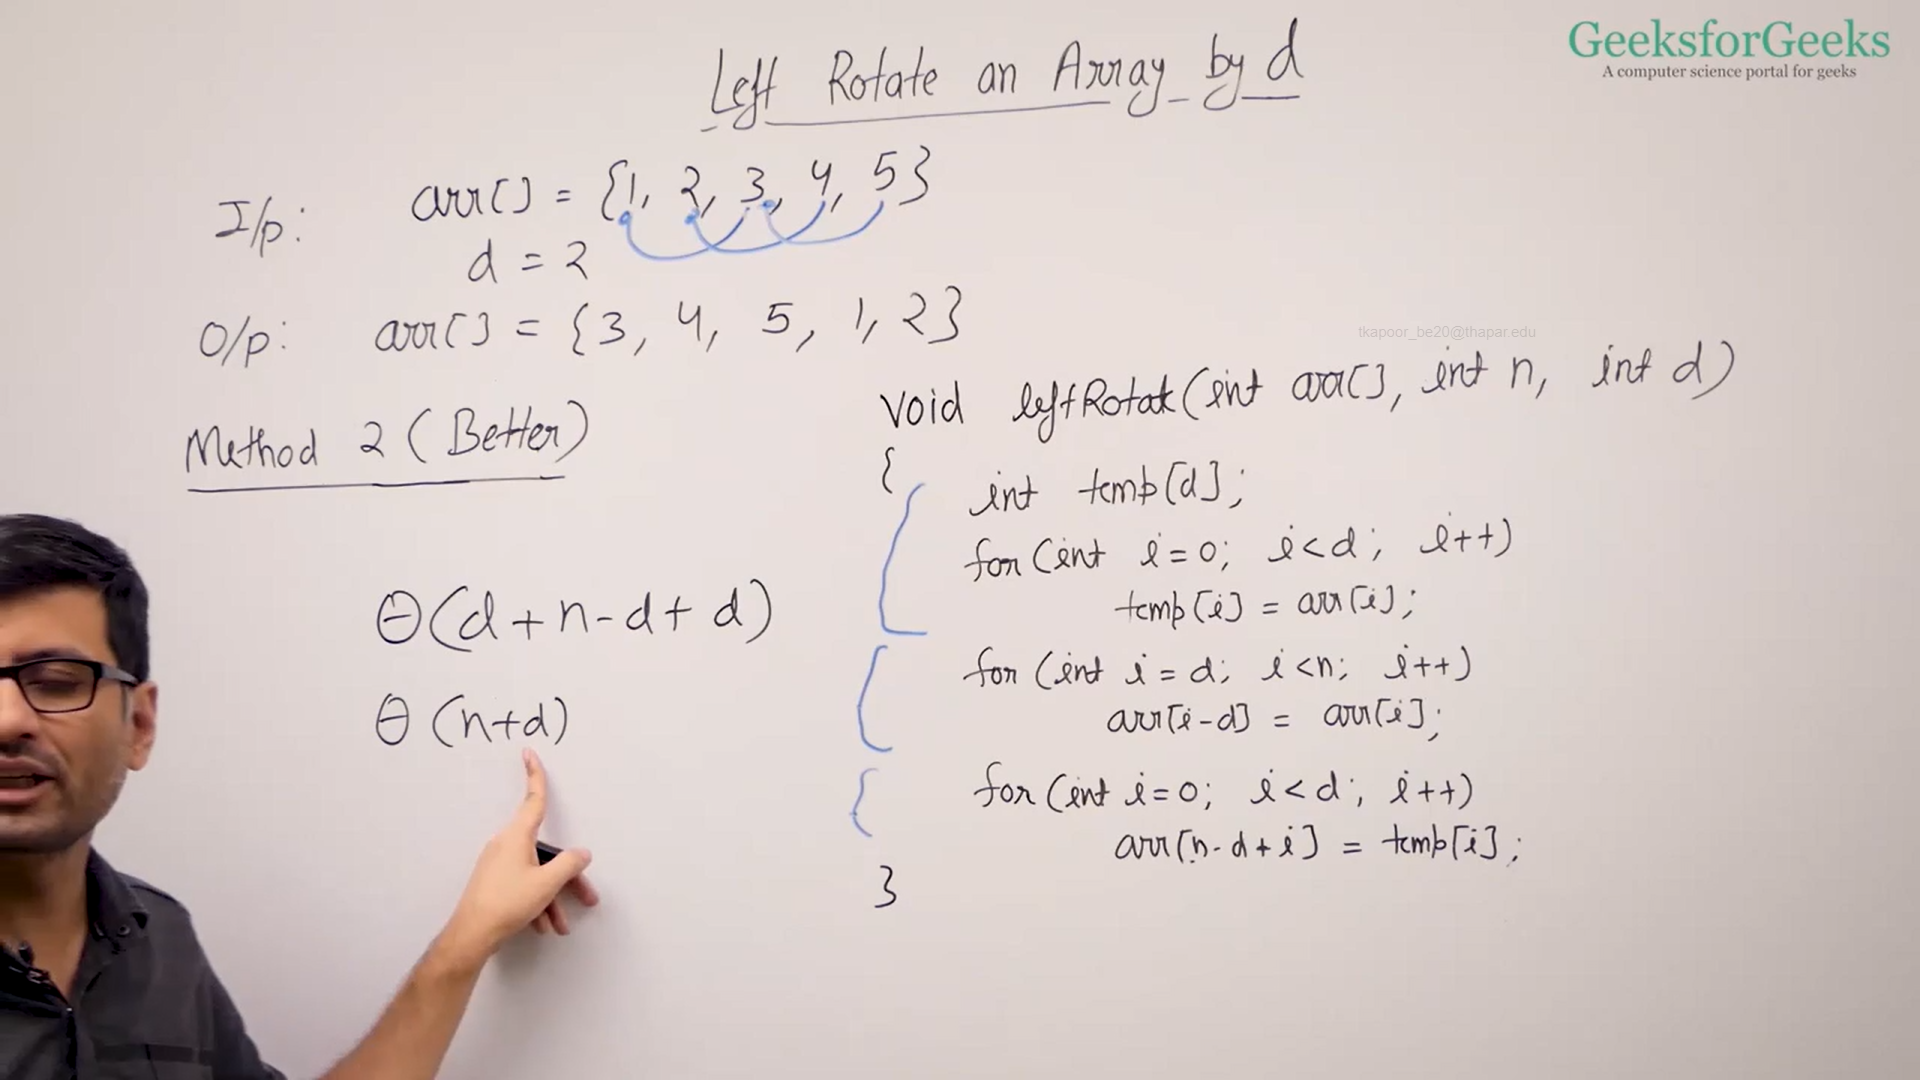 GeeksforGeeks
A computer science portal for geeks
Left Rotate an Array by d
I/p: arr[] = {1, 2, 3, 4, 5}
d = 2
O/p: arr[] = {3, 4, 5, 1, 2}
tkapoor_be20@thapar.edu
Method 2 (Better)
void leftRotate(int arr[], int n, int d)
{
int temp[d];
for (int i = 0; i < d; i++)
temp[i] = arr[i];
for (int i = d; i < n; i++)
arr[i-d] = arr[i];
for (int i = 0; i < d; i++)
arr[n-d+i] = temp[i];
}
θ(d + n - d + d)
θ(n+d)